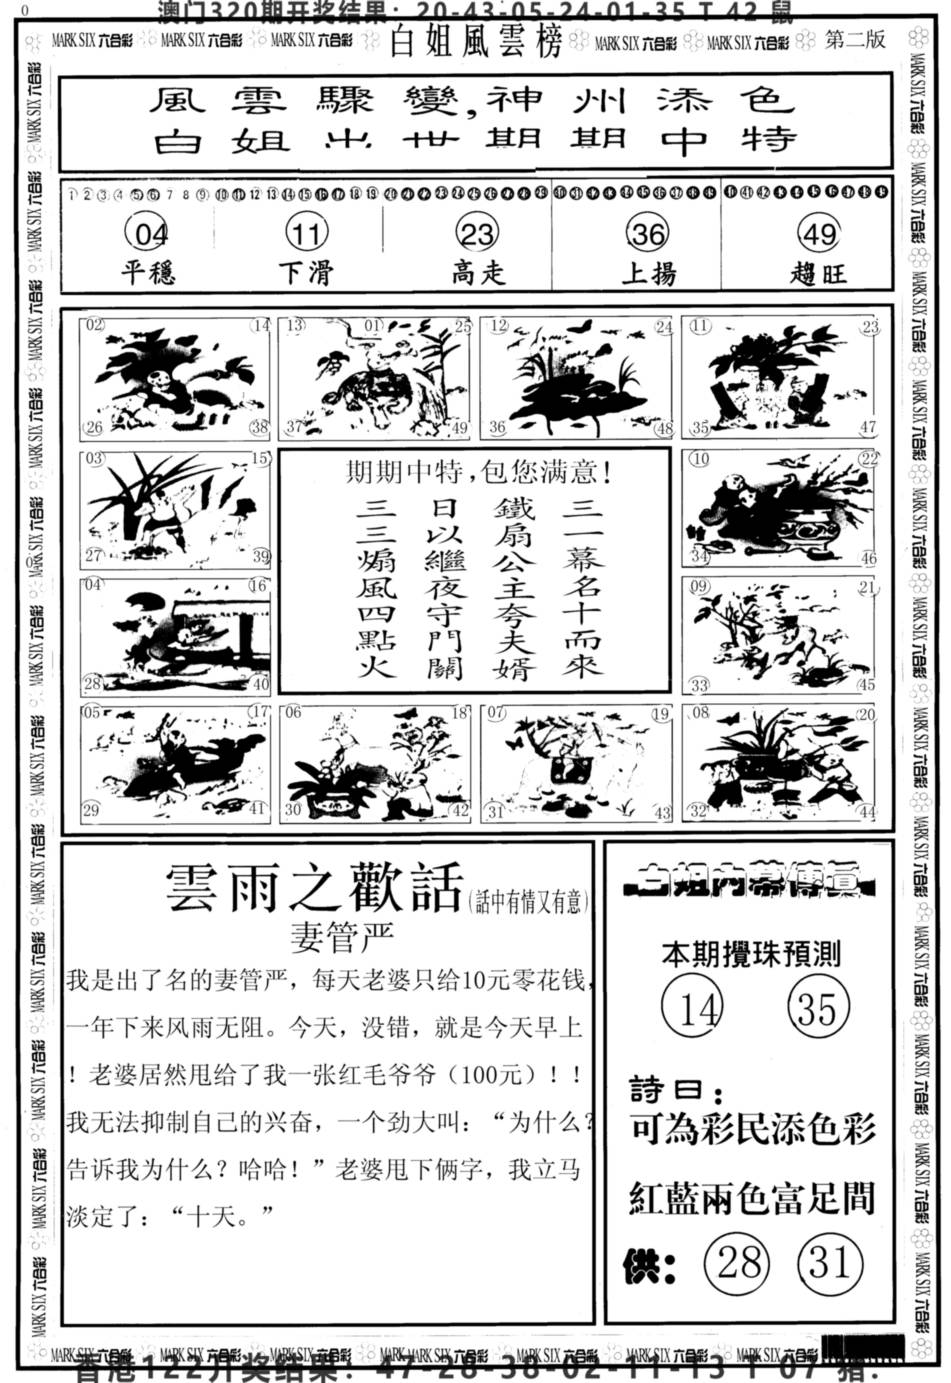 澳门320期开奖结果：20-43-05-24-01-35 T 42 鼠
0
MARK SIX 六合彩 MARK SIX 六合彩 MARK SIX 六合彩 白姐風雲榜 MARK SIX 六合彩 MARK SIX 六合彩 第二版
風雲驟變,神州添色
白姐出世期期中特
1 2 3 4 5 6 7 8 9 10 11 12 13 14 15 16 17 18 19 20 21 22 23 24 25 26 27 28 29 30 31 32 33 34 35 36 37 38 39 40 41 42 43 44 45 46 47 48 49
04 11 23 36 49
平穩 下滑 高走 上揚 趨旺
02 14 13 01 25 12 24 11 23
26 38 37 49 36 48 35 47
03 15 10 22
27 39 34 46
04 16 09 21
28 40 33 45
05 17 06 18 07 19 08 20
29 41 30 42 31 43 32 44
期期中特,包您满意!
三一幕名十而來
鐵扇公主夸夫婿
日以繼夜守門關
三三煽風四點火
雲雨之歡話(話中有情又有意)
妻管严
我是出了名的妻管严，每天老婆只给10元零花钱，
一年下来风雨无阻。今天，没错，就是今天早上
！老婆居然甩给了我一张红毛爷爷（100元）！！
我无法抑制自己的兴奋，一个劲大叫：“为什么？
告诉我为什么？哈哈！”老婆甩下俩字，我立马
淡定了：“十天。”
白姐内幕傳真
本期攪珠預測
14 35
詩曰：
可為彩民添色彩
紅藍兩色富足間
供： 28 31
MARK SIX 六合彩 MARK SIX 六合彩 MARK SIX 六合彩 MARK SIX 六合彩 MARK SIX 六合彩 MARK SIX 六合彩 MARK SIX 六合彩
香港122开奖结果：47-28-38-02-11-13 T 07 猪.